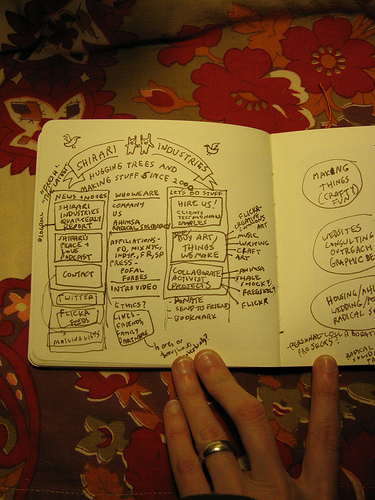 SHIRARI INDUSTRIES
HUGGING TREES AND
MAKING STUFF SINCE 2000
NEWS + NOTES
SHIRARI
INDUSTRIES
QUARTERLY
REPORT
SHIRARI
PEACE +
LOVE
PODCAST
CONTACT
TWITTER
FLICKR
FEEDS
MAILING LIST
WHO WE ARE
COMPANY
US
AHIMSA
RADICAL SOLIDARITY
AFFILIATIONS -
PRESS -
FORBES
INTRO VIDEO
ETHICS?
LINKS -
FRIENDS
FAMILY
PARTNERS
LETS DO STUFF
HIRE US!
CLIENTS
TESTIMONIALS
BUY ART/
THINGS
WE MAKE
COLLABORATE
ACTIVIST
PROJECTS
DONATE
- SEND TO FRIEND
- BOOKMARK
FLICKR
ART
MUSIC
WRITING
CRAFT
ART
AHIMSA
FLICKR
MAKING
THINGS
(CRAFTY
FUN
WEBSITES
CONSULTING
OUTREACH
GRAPHIC DE
WEDDING/
RADICAL
PROJECTS?
RADICAL